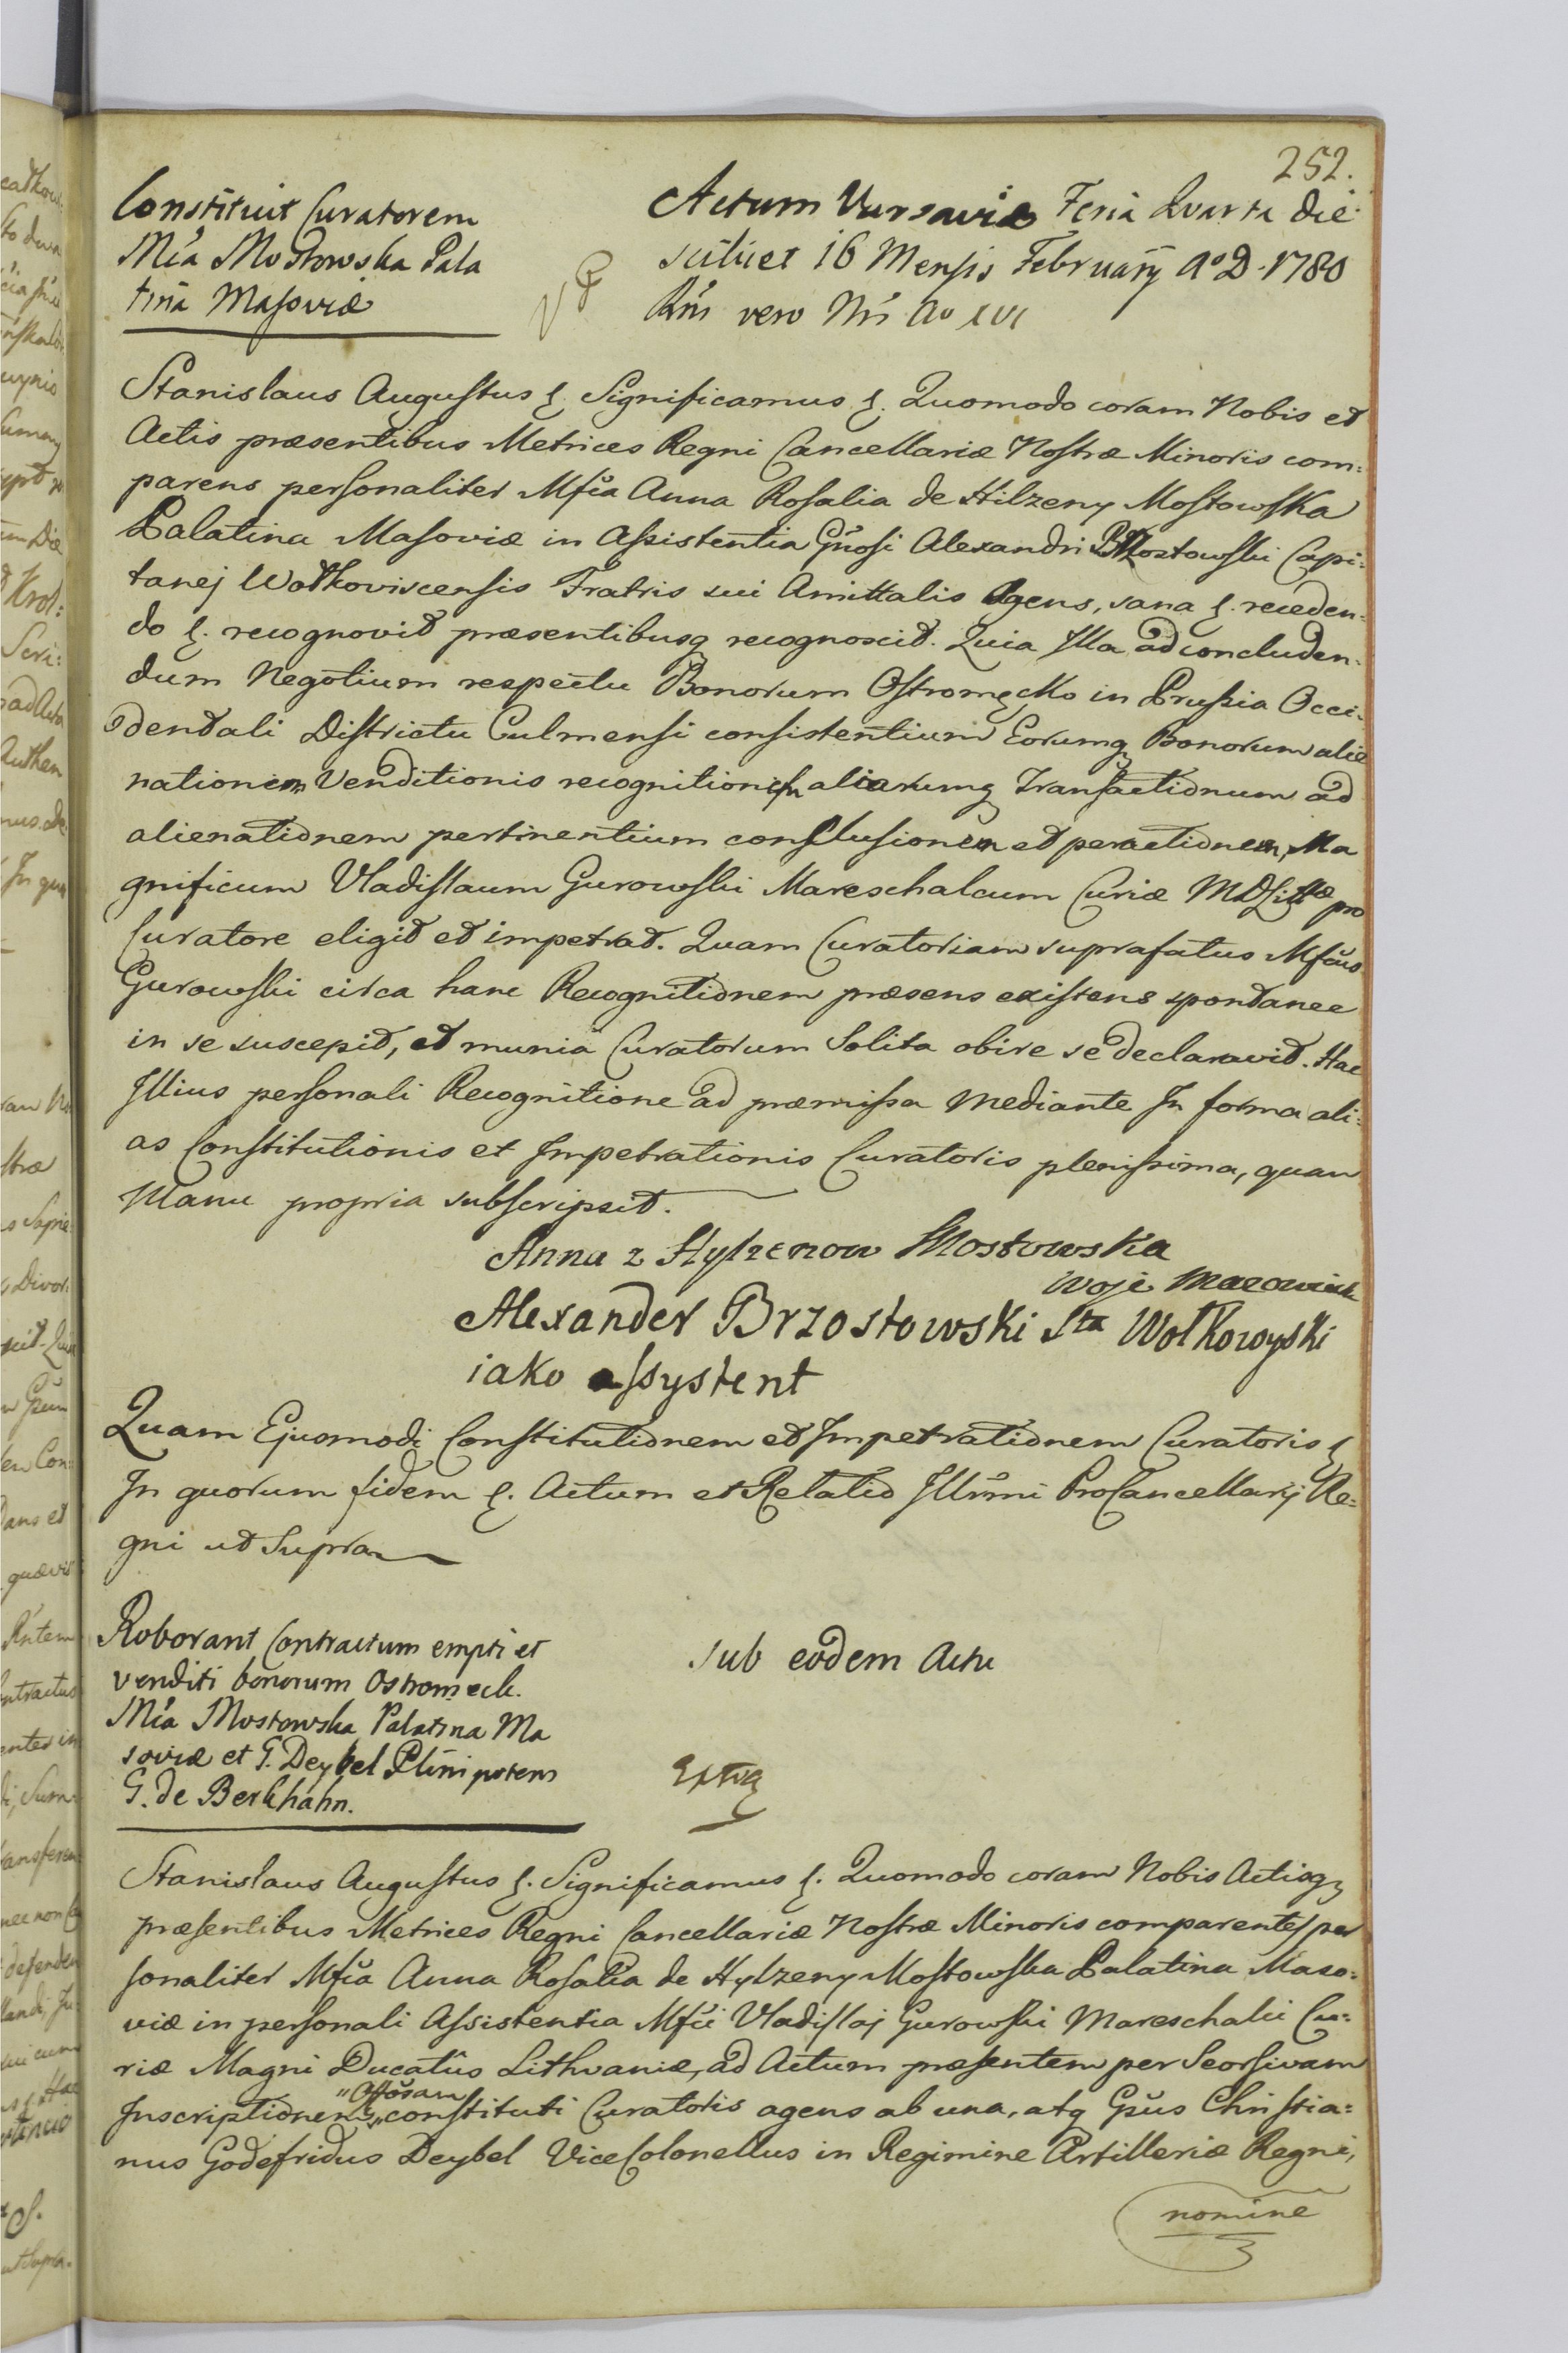 252.
Constituit Curatorem
Mća Mostowska Pala
tina Masoviæ
Actum Varsaviæ Feria Quarta die
scilicet 16 Mensis Februarij Aº D. 1780
Rni vero Nri Aº XVI
Stanislaus Augustus &. Significamus &. Quomodo coram Nobis et
Actis præsentibus Metrices Regni Cancellariæ Nostræ Minoris com:
parens personaliter Mfca Anna Rosalia de Hilzeny Mostowska
Palatina Masoviæ in Assistentia Gnosi Alexandri Brzostowski Capi:
tanej Wołkoviscensis Fratris sui Amittalis Agens, sana &. receden:
do &. recognovit præsentibusq recognoscit. Quia Illa ad concluden:
dum Negotium respectu Bonorum Ostromęcko in Prussia Occi:
dentali Districtu Culmensi consistentium Eorumq Bonorum alie
nationem Venditionis recognitionem aliarumq Transactionum ad
alienationem pertinentium conclusionem et peractionem, Ma
gnificum Vladislaum Gurowski Mareschalcum Curiæ MDLittæ pro
Curatore eligit et impetrat. Quam Curatoriam suprafatus Mfcus
Gurowski circa hanc Recognitionem præsens existens spontanee
in se suscepit, et munia Curatorum Solita obire se declaravit. Hac
Illius personali Recognitione ad præmissa mediante In forma ali:
as Constitutionis et Impetrationis Curatoris plenissima, quam
Manu propria subscripsit.
Anna z Hylzenow Mostowska
Woje Mazowieck
Alexander Brzostowski Sta Wołkowyski
iako assystent
Quam Ejusmodi Constitutionem et Impetrationem Curatoris &
In quorum fidem &. Actum et Relatio Illrmi ProCancellarij Re:
gni ut Supra
Roborant Contractum empti et
venditi bonorum Ostromeck.
Mća Mostowska Palatina Ma
soviæ et G. Deybel Plenipotens
G. de Berkhahn.
Sub eodem Actu
Extra
Stanislaus Augustus &. Significamus &. Quomodo coram Nobis Actisq
præsentibus Metrices Regni Cancellariæ Nostræ Minoris comparentes per
sonaliter Mfca Anna Rosalia de Hylzeny Mostowska Palatina Maso:
viæ in personali Assistentia Mfci Vladislaj Gurowski Mareschalci Cu:
riæ Magni Ducatûs Lithvaniæ, ad Actum præsentem per Seorsivam
Inscriptionem constituti Curatoris agens ab una, atq Gsus Christia:
nus Godefridus Deybel ViceColonellus in Regimine Artilleriæ Regni,
nomine